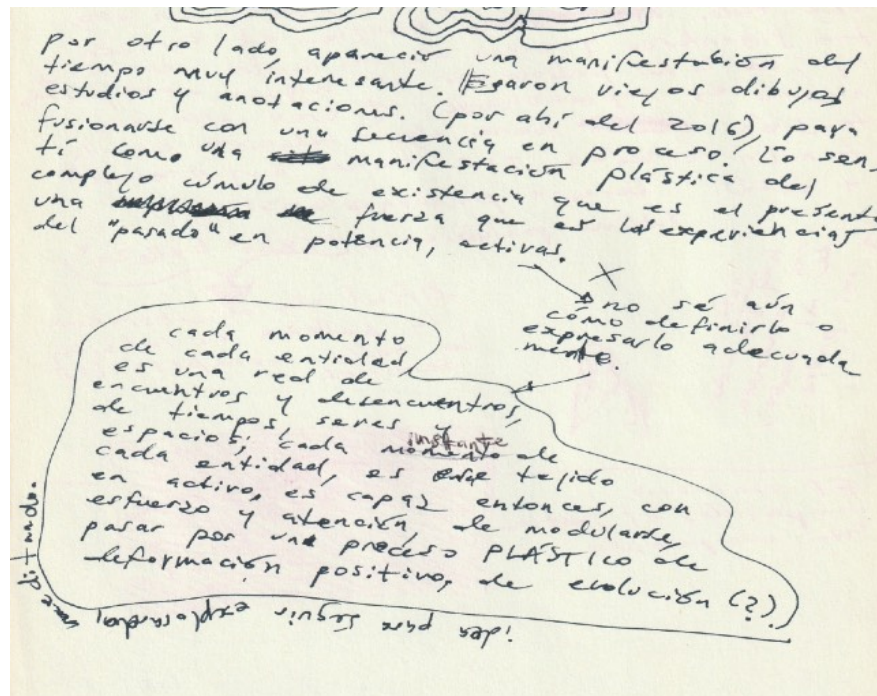 Por otro lado, apareció una manifestación del
tiempo muy interesante. Llegaron viejos dibujos
estudios y anotaciones. (por ahí del 2016), para
fusionarse con una secuencia en proceso. Lo sen-
tí como una manifestación plástica del
complejo cúmulo de existencia que es el presente
una fuerza que es las experiencias
del "pasado" en potencia, activas.
no sé aún
cómo definirlo o
expresarlo adecuada
mente.
cada momento
de cada entidad
es una red de
encuentros y desencuentros,
de tiempos, seres y
espacios; cada momento de
instante
cada entidad, es ese tejido
en activo, es capaz entonces, con
esfuerzo y atención, de modularse,
pasar por un proceso PLÁSTICO de
deformación positivo, de evolución (?)
idea para seguir explorando,
meditando.